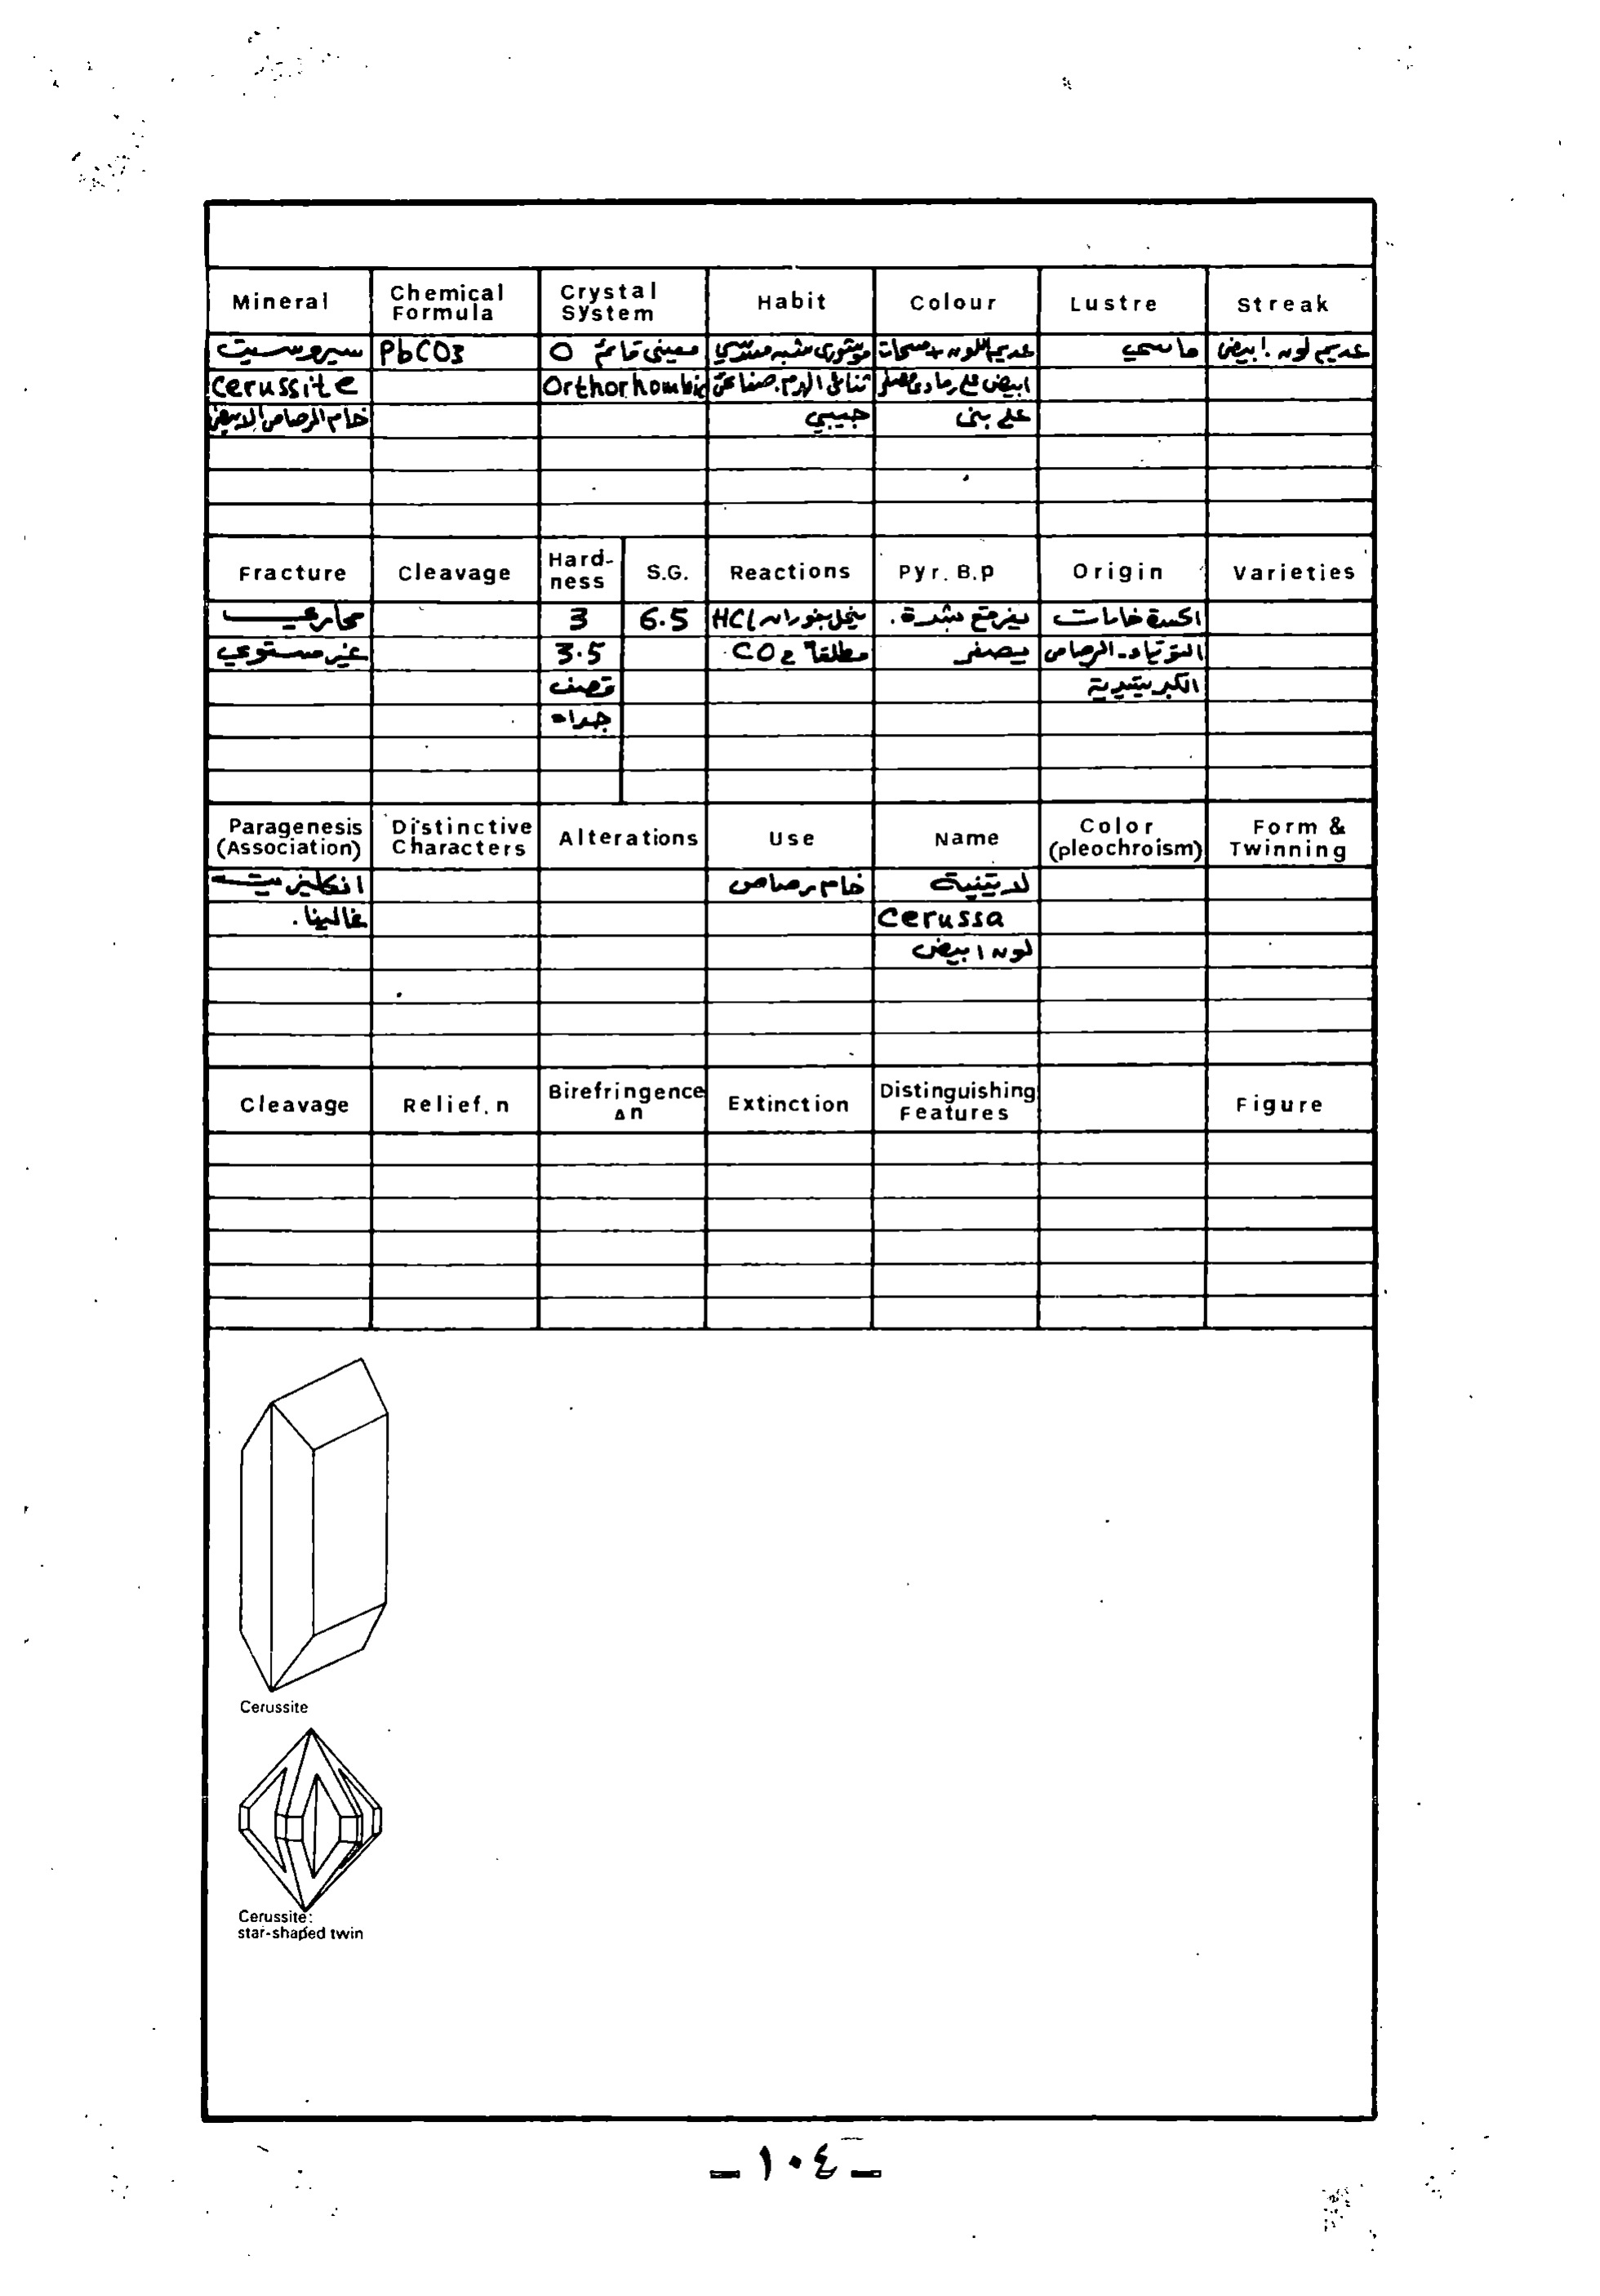 Mineral | Chemical Formula | Crystal System | Habit | Colour | Lustre | Streak
سيروسيت | PbCO3 | معيني قائم O | موشوري شبه مسدسي | عديم اللون + مسحات | ماسي | عديم لون . ابيض
Cerussite | Orthorhombic | ثنائي الهرم . صفائحي | ابيض على رمادي مصفر
خام الرصاص الابيض | حبيبي | على بني
Fracture | Cleavage | Hard-ness | S.G. | Reactions | Pyr. B.p | Origin | Varieties
محاري | 3 | 6.5 | ينحل بفوران HCl | يفرقع بشدة . | اكسدة خامات
غير مستوي | 3.5 | مطلقاً CO2 | يصفر | التوتياء - الرصاص
قصف | الكبريتيدية
جداً
Paragenesis (Association) | Distinctive Characters | Alterations | Use | Name | Color (pleochroism) | Form & Twinning
انكليزيت | خام رصاص | لاتينية
غالينا . | Cerussa
لون ابيض
Cleavage | Relief. n | Birefringence Δn | Extinction | Distinguishing Features | Figure
Cerussite
Cerussite:
star-shaped twin
– ١٠٤ –